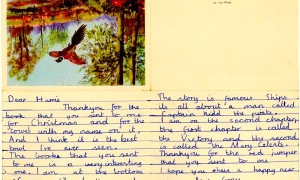 Dear Hami
Thankyou for the
book that you sent to me
for Christmas and for the
towel with my name on it,
And I think it is the best
bowl I've ever seen.
The books that you sent
to me is a very interesting
one. I am at the bottom
The story is famous Ships
its all about a man called
Captain Kidd the pirate.
I am on the second chapter,
the first chapter is called
the Victory and the second
is called the Mary Celeste.
Thankyou for the red jumper
that you sent to me
hope you have a happy new